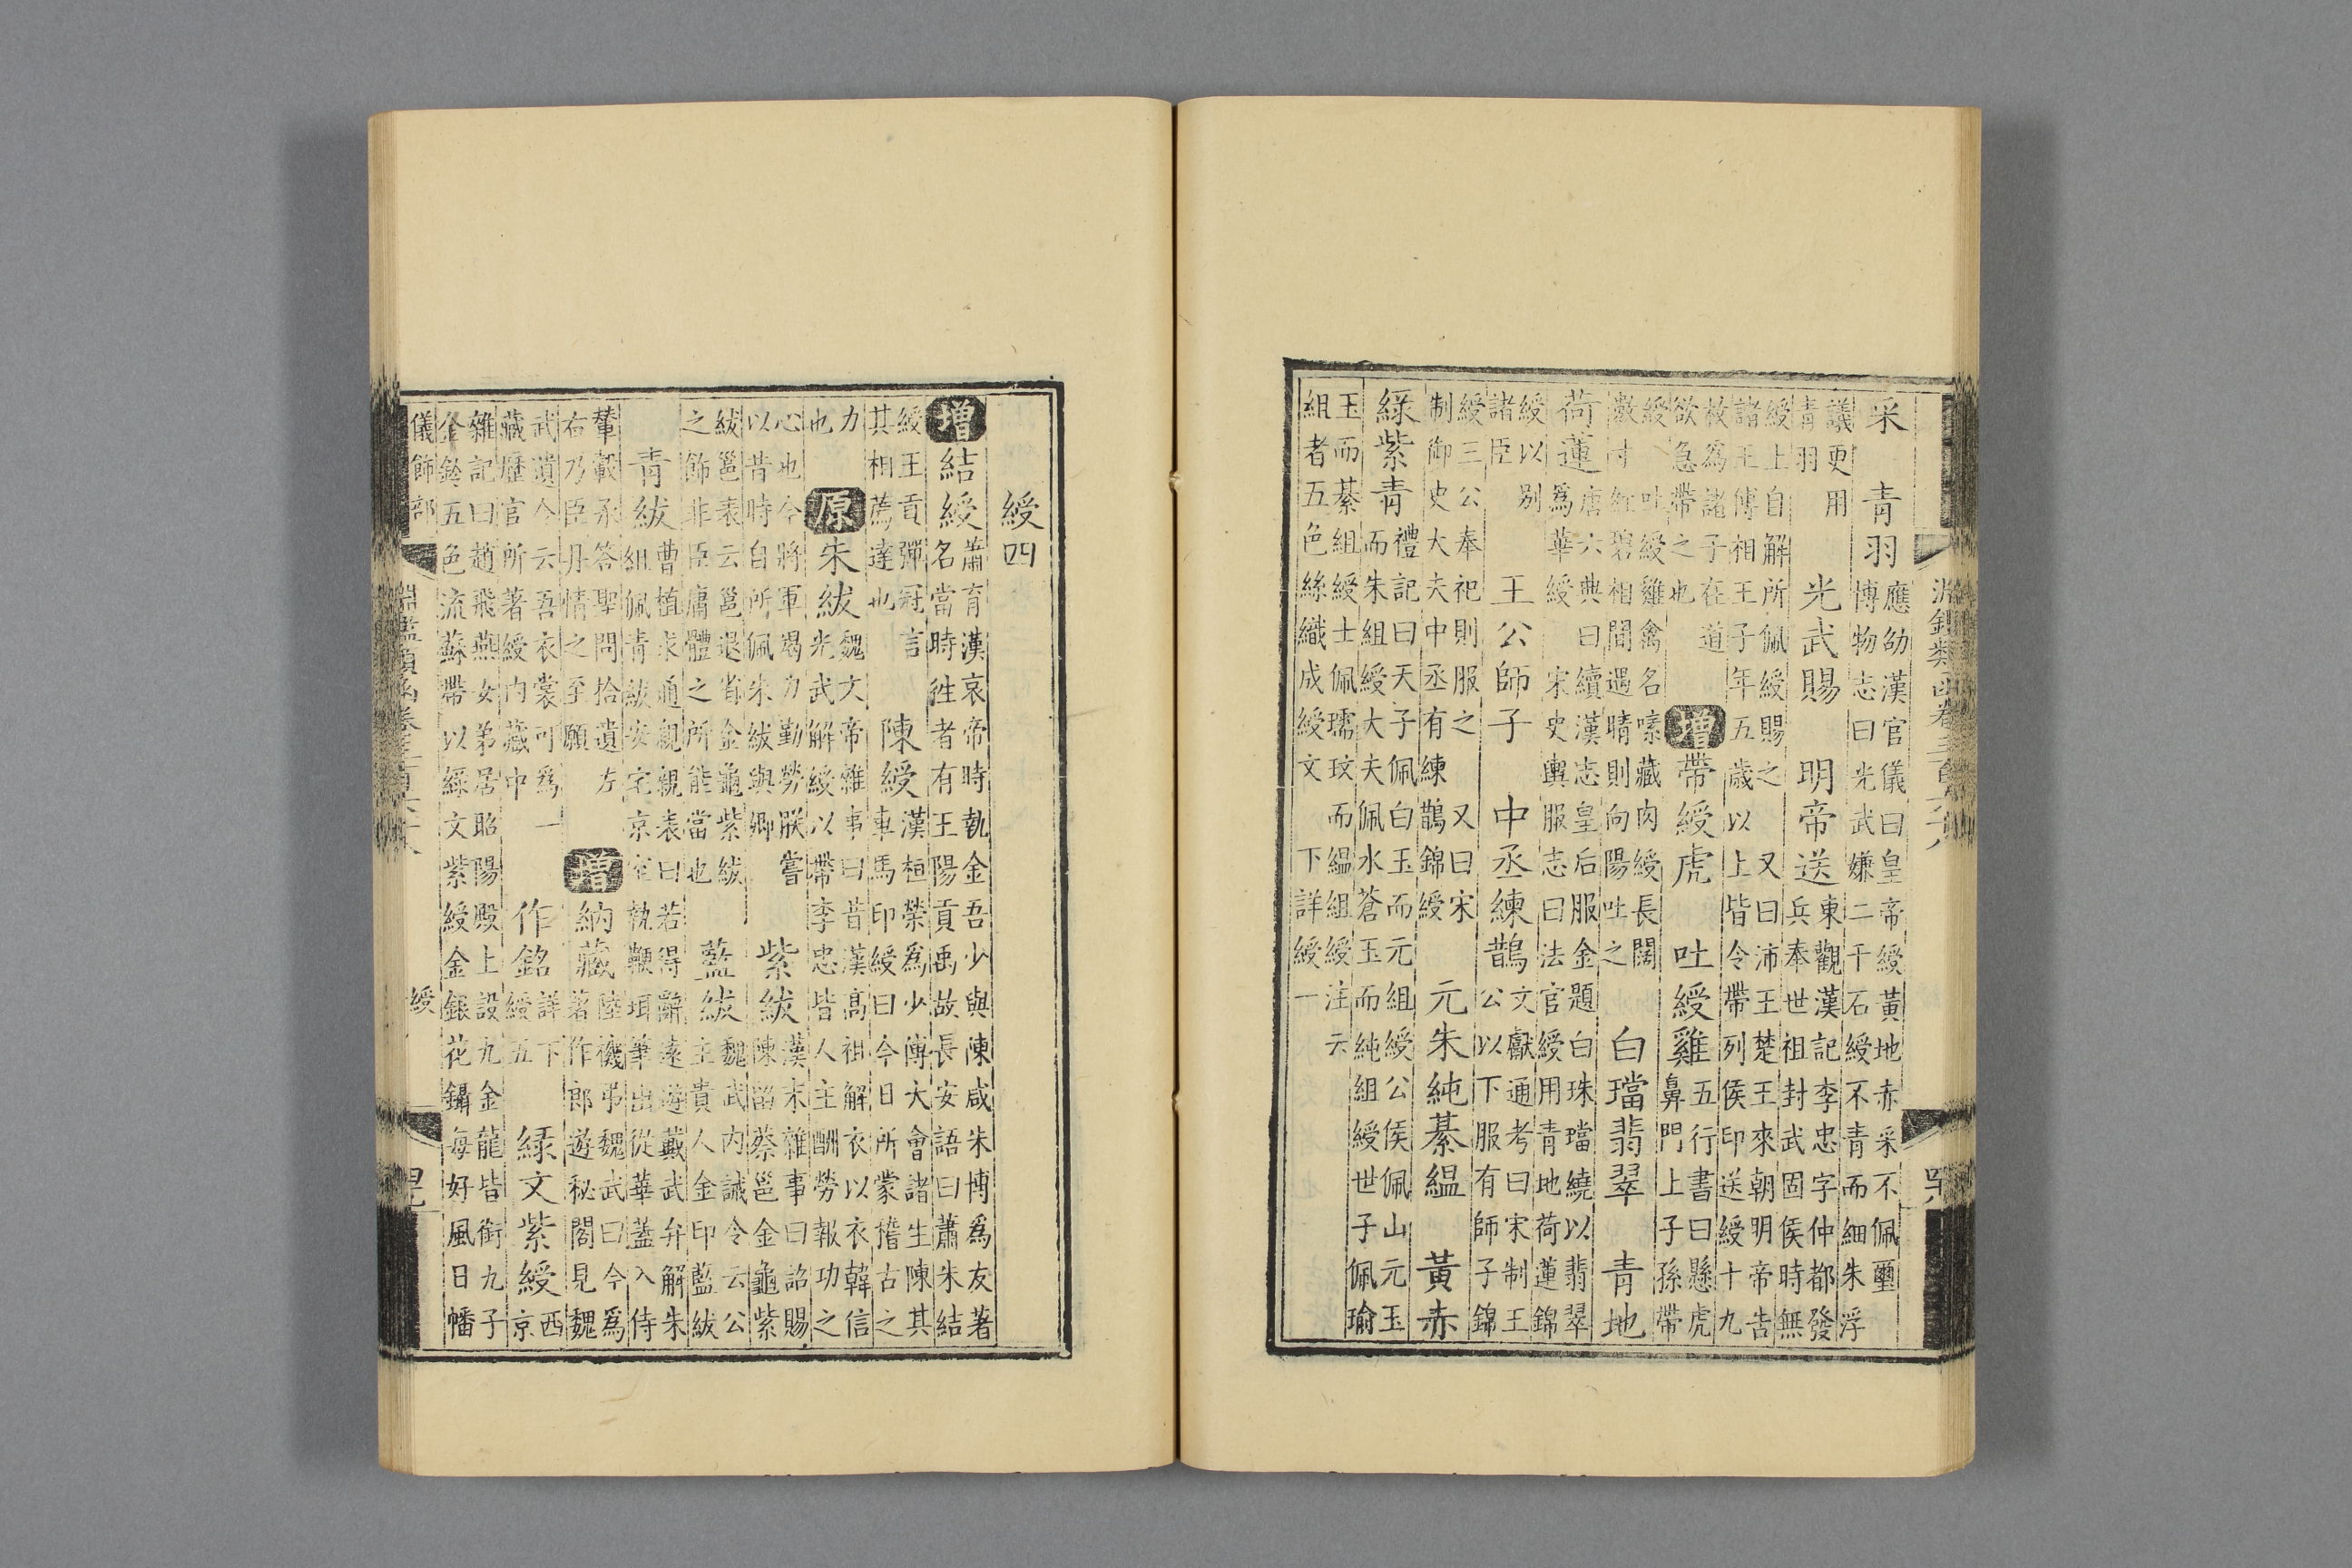 淵鑑類函卷三百六十八
采　青羽應劭漢官儀曰皇帝綬黃地赤采不佩璽
博物志曰光武嫌二千石綬不青而細朱浮
議更用
青羽　光武賜　明帝送東觀漢記李忠字仲都發
兵奉世祖封武固侯時無
綬上自解所佩綬賜之　又曰沛王楚王來朝明帝告
諸王傅相王子年五歲以上皆令帶列侯印送綬十九
枚為諸子在道
欲急帶之也　增帶綬虎　吐綬雞五行書曰懸虎
鼻門上子孫帶
綬　吐綬雞禽名嗉藏肉綬長闊
數寸紅碧相間遇晴則向陽吐之　白璫翡翠　青地
荷蓮唐六典曰續漢志皇后服金題白珠璫繞以翡翠
為華綬　宋史輿服志曰法官綬用青地荷蓮錦
綬以別
諸臣　王公師子　中丞練鵲文獻通考曰宋制王
公以下服有師子錦
綬三公奉祀則服之　又曰宋
制御史大夫中丞有練鵲錦綬　元朱純綦縕　黃赤
綠紫青禮記曰天子佩白玉而元組綬公侯佩山元玉
而朱組綬大夫佩水蒼玉而純組綬世子佩瑜
玉而綦組綬士佩瓀玟而縕組綬注云
組者五色絲織成綬文　下詳綬一
綬四
增結綬蕭育漢哀帝時執金吾少與陳咸朱博為友著
名當時往者有王陽貢禹故長安語曰蕭朱結
綬王貢彈冠言
其相薦達也　陳綬漢桓榮為少傅大會諸生陳其
車馬印綬曰今日所蒙稽古之
力
也　原朱紱魏文帝雜事曰昔漢高祖解衣以衣韓信
光武解綬以帶李忠皆人主酬勞報功之
心也今將軍竭力勤勞朕嘗
以昔時自所佩朱紱與卿　紫紱漢末雜事曰詔賜
陳留蔡邕金龜紫
紱邕表云邕退省金龜紫紱
之飾非臣庸體之所能當也　藍紱魏武內誡令云公
主貴人金印藍紱
青紱曹植求通親親表曰若得辭遠遊戴武弁解朱
組佩青紱安宅京室執鞭珥筆出從華蓋入侍
輦轂承答聖問拾遺左
右乃臣丹情之至願　增納藏陸機弔魏武曰今為魏
著作郎遊秘閣見魏
武遺令云吾衣裳可為一
藏歷官所著綬內藏中　作銘詳下
綬五　綠文紫綬西
京
雜記曰趙飛燕女弟居昭陽殿上設九金龍皆銜九子
金鈴五色流蘇帶以綠文紫綬金銀花鑷每好風日幡
儀飾部　綬